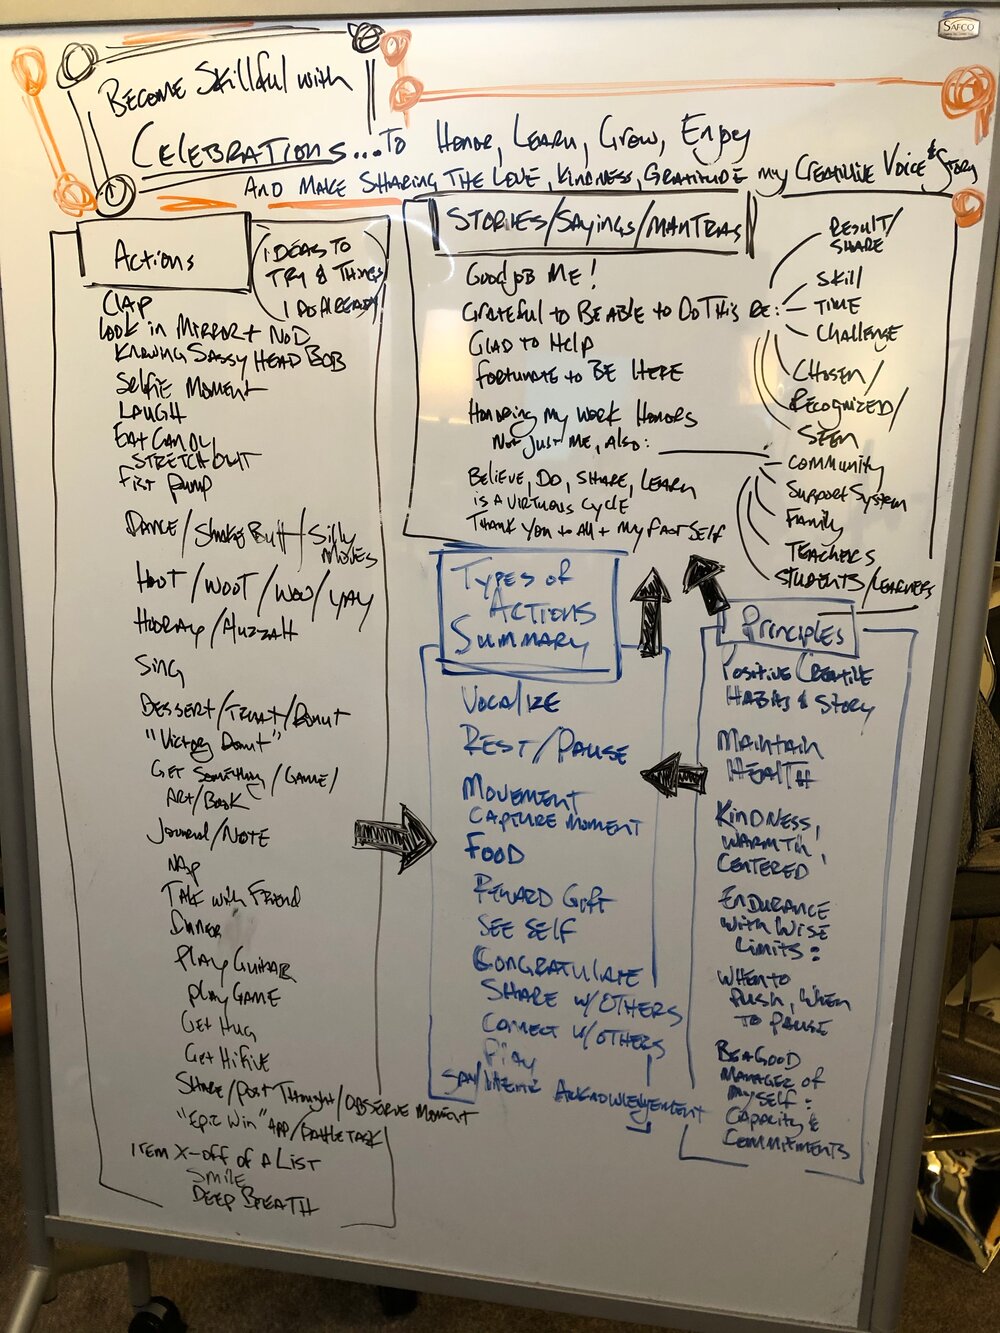 SAFCO
BECOME Skillful with
CELEBRATIONS...TO HONOR, LEARN, GROW, ENJOY
AND MAKE SHARING THE LOVE, KINDNESS, GRATITUDE my CREATIVE VOICE & STORY
Actions
(IDEAS TO
TRY & THINGS
I DO ALREADY)
CLAP
LOOK in MIRROR + NOD
KNOWING SASSY HEAD BOB
SELFIE MOMENT
LAUGH
EAT CANDY
STRETCH OUT
FIST PUMP
DANCE/SHAKE BUTT/SILLY
MOVES
HOOT/WOOT/WOW/YAY
HOORAY/HUZZAH
SING
DESSERT/TREAT/DONUT
"Victory Donut"
GET SOMETHING/GAME/
ART/BOOK
JOURNAL/NOTE
NAP
TALK with FRIEND
DINNER
PLAY GUITAR
PLAY GAME
GET HUG
GET HIFIVE
SHARE/POST THOUGHT/OBSERVE MOMENT
"EPIC WIN" APP/BATTLE TASK
ITEM X-OFF OF A LIST
SMILE
DEEP BREATH
STORIES/SAYINGS/MANTRAS
GOOD JOB ME!
GRATEFUL TO BE ABLE TO DO THIS RE:
RESULT/
SHARE
SKILL
TIME
CHALLENGE
CHOSEN/
RECOGNIZED/
SEEN
GLAD TO HELP
FORTUNATE to BE HERE
HONORING MY WORK HONORS
NOT JUST ME, ALSO:
COMMUNITY
SUPPORT SYSTEM
FAMILY
TEACHERS
STUDENTS/LEARNERS
BELIEVE, DO, SHARE, LEARN
IS A VIRTUOUS CYCLE
THANK YOU TO ALL + MY PAST SELF
TYPES OF
ACTIONS
SUMMARY
VOCALIZE
REST/PAUSE
MOVEMENT
CAPTURE MOMENT
FOOD
REWARD GIFT
SEE SELF
CONGRATULATE
SHARE W/OTHERS
CONNECT W/OTHERS
PLAY
ACKNOWLEDGEMENT
Principles
POSITIVE CREATIVE
HABITS & STORY
MAINTAIN
HEALTH
KINDNESS,
WARMTH,
CENTERED
ENDURANCE
WITH WISE
LIMITS:
WHEN TO
PUSH, WHEN
TO PAUSE
BE A GOOD
MANAGER OF
MYSELF:
CAPACITY &
COMMITMENTS